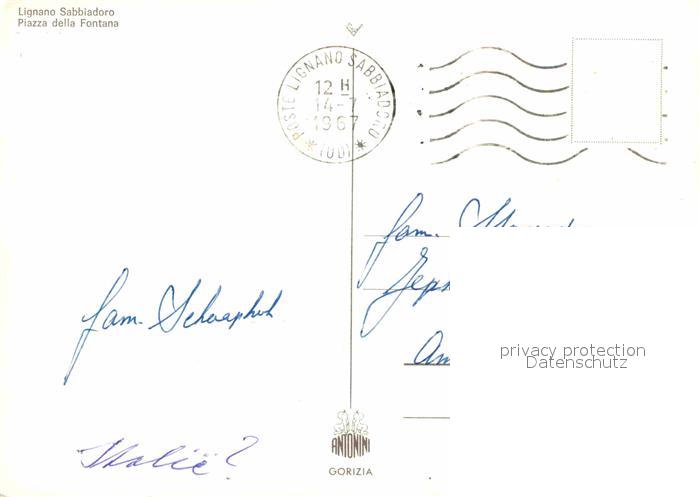 Lignano Sabbiadoro
Piazza della Fontana
POSTE LIGNANO SABBIADORO
12 H
14-7
1967
* (UD) *
fam.
fam.
Italië?
privacy protection
Datenschutz
ANTONINI
GORIZIA